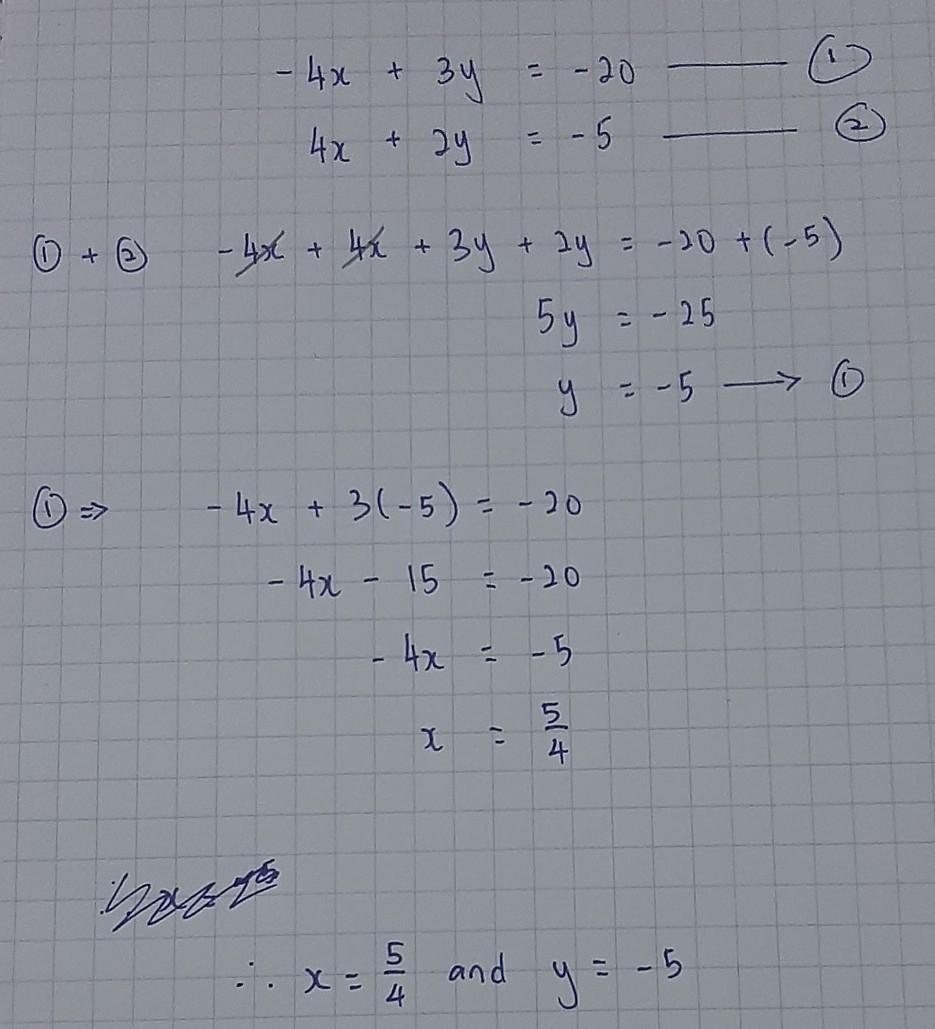 -4x + 3y = -20 ——— ①
4x + 2y = -5 ——— ②
① + ② -4x + 4x + 3y + 2y = -20 + (-5)
5y = -25
y = -5 ⟶ ①
① ⇒ -4x + 3(-5) = -20
-4x - 15 = -20
-4x = -5
x = 5/4
∴ x = 5/4 and y = -5